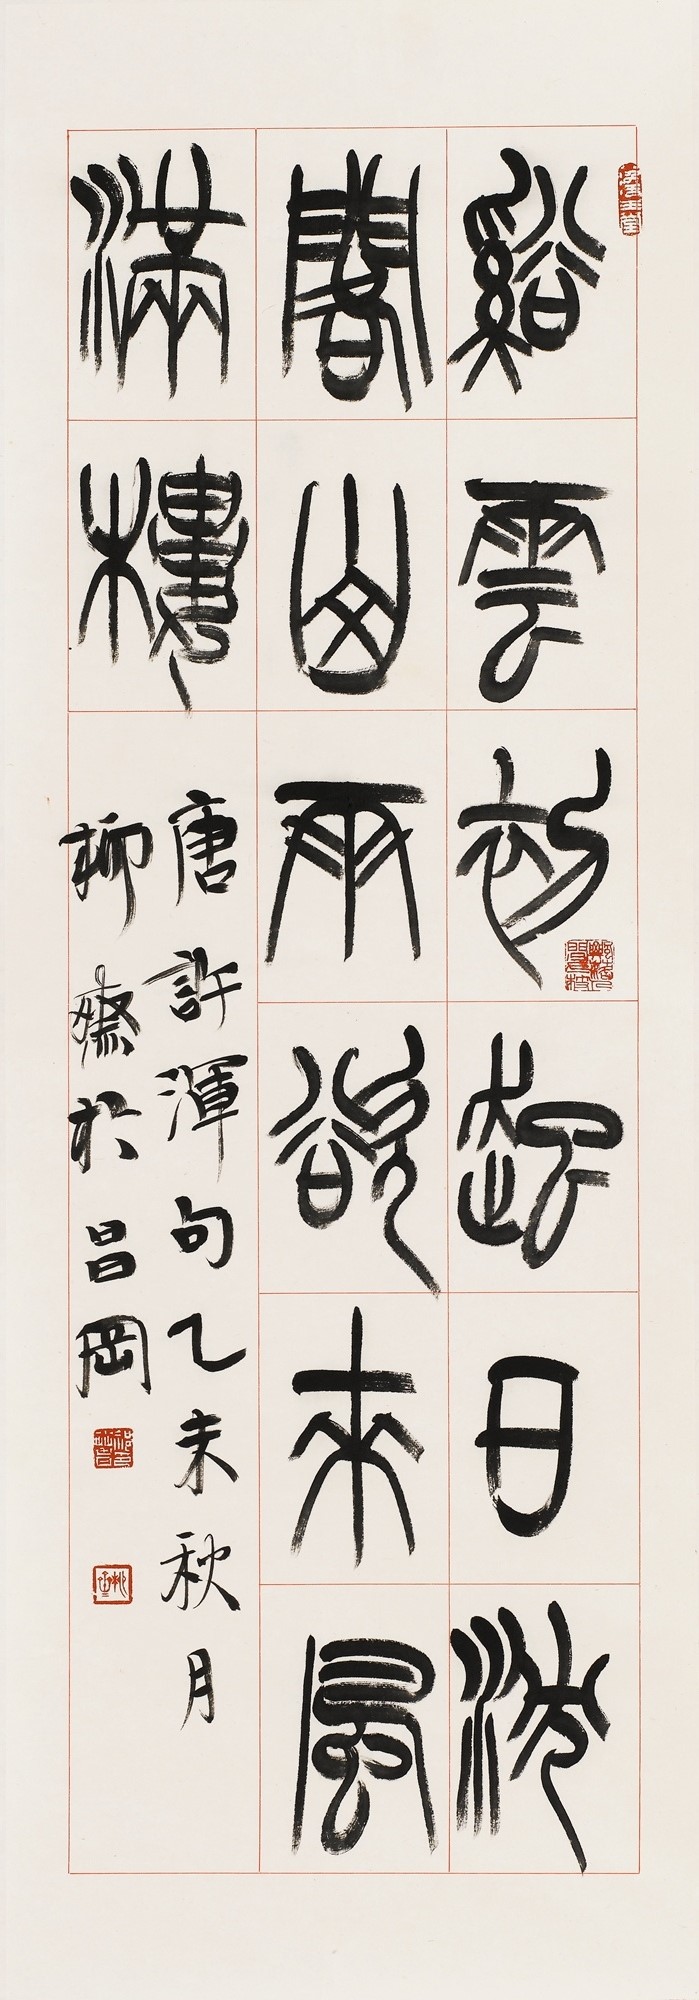 谿雲初起日沈
閣山雨欲來風
滿樓
唐許渾句乙未秋月
柳齋於呂岡